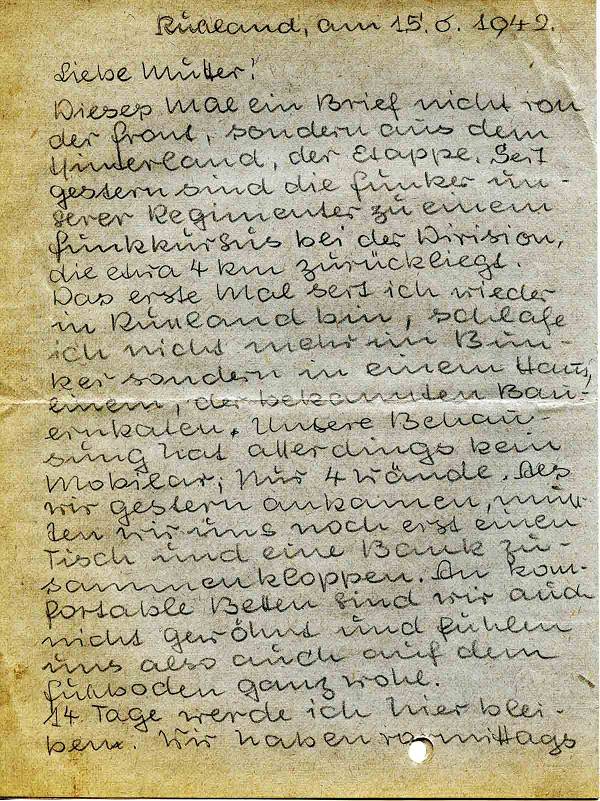 Rußland, am 15.6.1942.
Liebe Mutter!
Dieses Mal ein Brief nicht von
der Front, sondern aus dem
Hinterland, der Etappe. Seit
gestern sind die Funker un-
serer Regimenter zu einem
Funkkursus bei der Division,
die etwa 4 km zurückliegt.
Das erste Mal seit ich wieder
in Rußland bin, schlafe
ich nicht mehr im Bun-
ker sondern in einem Haus,
einem, der bekannten Bau-
ernkaten. Unsere Behau-
sung hat allerdings kein
Mobilar, Nur 4 Wände. Als
wir gestern ankamen, muß-
ten wir uns noch erst einen
Tisch und eine Bank zu-
sammenkloppen. An kom-
fortable Betten sind wir auch
nicht gewöhnt und fühlen
uns also auch auf dem
Fußboden ganz wohl.
14 Tage werde ich hier blei-
ben. Wir haben vormittags